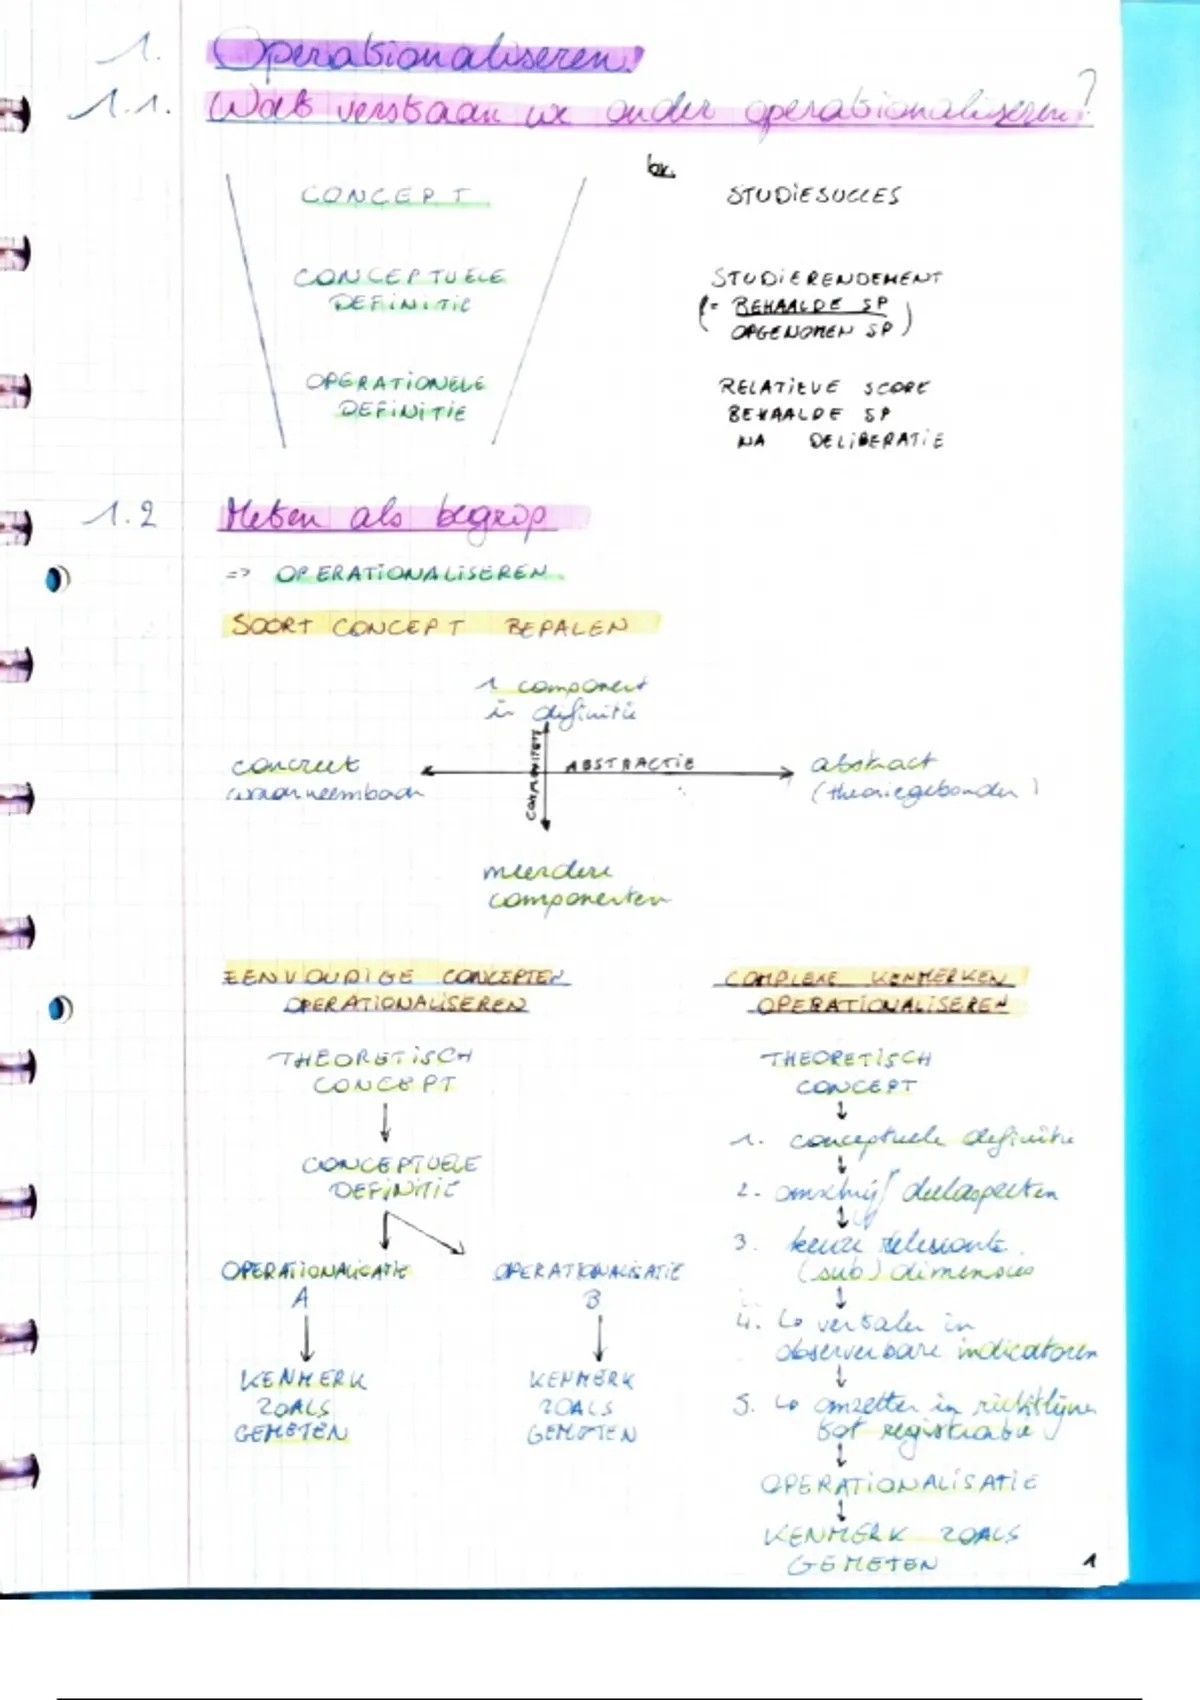 1. Operationaliseren
1.1. Wat verstaan we onder operationaliseren?
bv.
CONCEPT
STUDIESUCCES
CONCEPTUELE
DEFINITIE
STUDIERENDEMENT
(= BEHAALDE SP
OPGENOMEN SP)
OPERATIONELE
DEFINITIE
RELATIEVE SCORE
BEHAALDE SP
NA DELIBERATIE
1.2 Meten als begrip
=> OPERATIONALISEREN
SOORT CONCEPT BEPALEN
1 component
in definitie
concreet
waarneembaar
COMPLEXITEIT
ABSTRACTIE
abstract
(theoriegebonden)
meerdere
componenten
EENVOUDIGE CONCEPTEN
OPERATIONALISEREN
THEORETISCH
CONCEPT
↓
CONCEPTUELE
DEFINITIE
OPERATIONALISATIE
A
OPERATIONALISATIE
B
KENMERK
ZOALS
GEMETEN
KENMERK
ZOALS
GEMETEN
COMPLEXE KENMERKEN
OPERATIONALISEREN
THEORETISCH
CONCEPT
↓
1. conceptuele definitie
↓
2. omschrijf deelaspecten
↓
3. keuze relevante
(sub) dimensies
↓
4. ↳ vertalen in
observeerbare indicatoren
↓
5. ↳ omzetten in richtlijnen
tot registratie
↓
OPERATIONALISATIE
↓
KENMERK ZOALS
GEMETEN
1